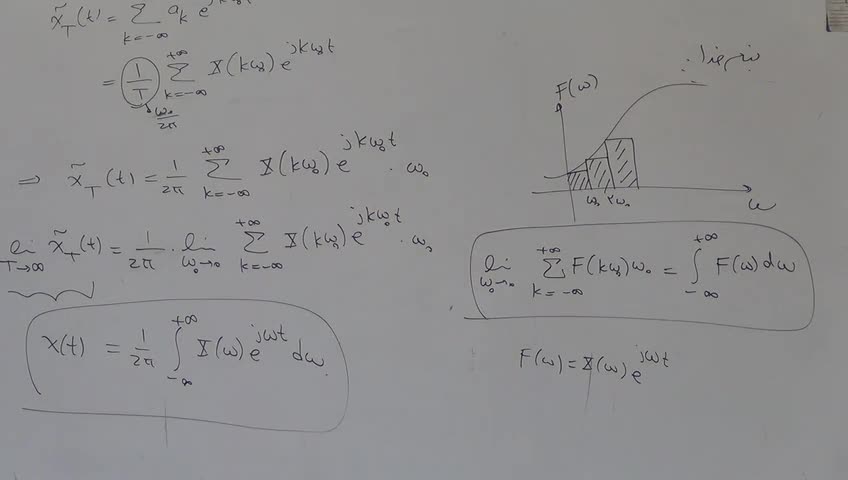 x̃_T(t) = Σ_{k=-∞} a_k e^{jkω₀t}
= (1/T) Σ_{k=-∞}^{+∞} X(kω₀) e^{jkω₀t}
ω₀/2π
⇒ x̃_T(t) = 1/2π Σ_{k=-∞}^{+∞} X(kω₀) e^{jkω₀t} · ω₀
lim_{T→∞} x̃_T(t) = 1/2π · lim_{ω₀→0} Σ_{k=-∞}^{+∞} X(kω₀) e^{jkω₀t} · ω₀
x(t) = 1/2π ∫_{-∞}^{+∞} X(ω) e^{jωt} dω
F(ω)
ω₀ ۲ω₀
ω
lim_{ω₀→0} Σ_{k=-∞}^{+∞} F(kω₀)ω₀ = ∫_{-∞}^{+∞} F(ω)dω
F(ω) = X(ω) e^{jωt}